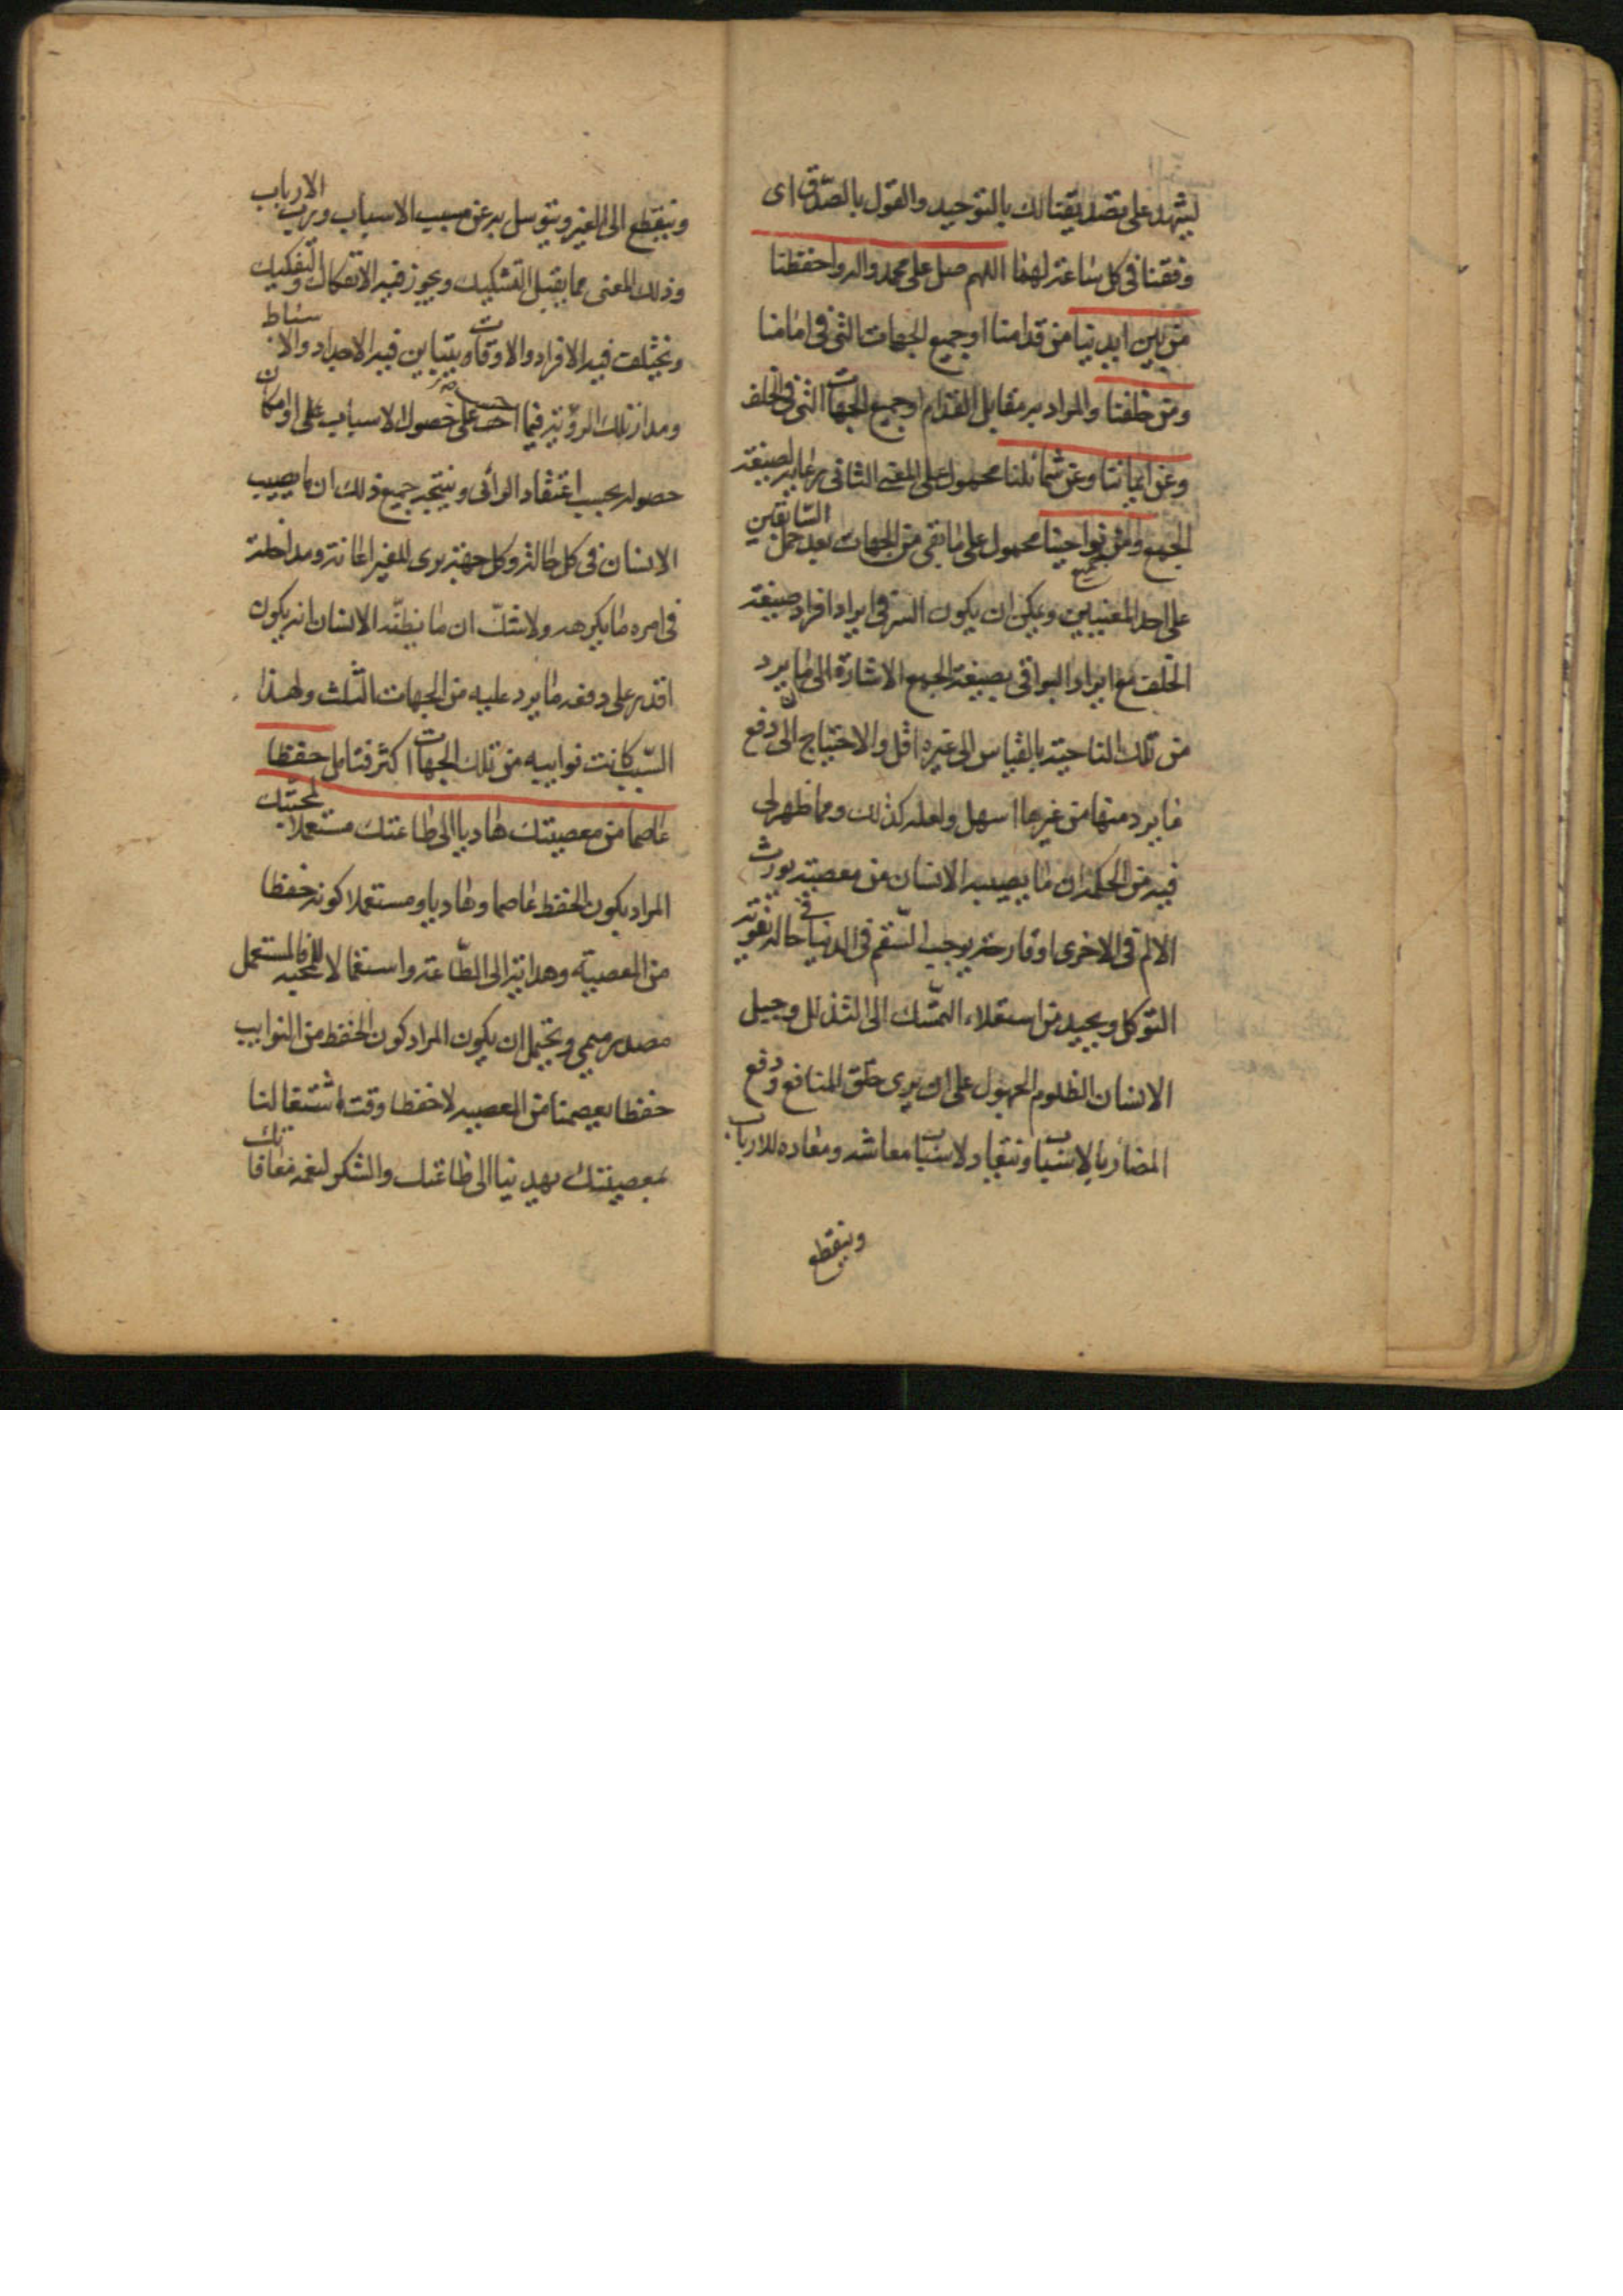 ليشهد على تصديقنا لك بالتوحيد والقول بالصدق اى
وفقنا فى كل ساعة لهما اللهم صل على محمد واله واحفظنا
من بين ايدينا من قدامنا او جميع الجهات التى فى امامنا
ومن خلفنا والمراد به مقابل القدام او جميع الجهات التى فى الخلف
وعن ايماننا وعن شمائلنا محمول على المعنى الثانى رعاية لصيغة
الجمع ومن جميع نواحينا محمول على ما بقى من الجهات بعد حمل السابقين
على احد المعنيين ويمكن ان يكون السر فى ايراد افراد صيغة
الخلف مع ايراد البواقى بصيغة الجمع الاشارة الى ان ما يرد
من تلك الناحية بالقياس الى غيره اقل والاحتياج الى دفع
ما يرد منها من غيرها اسهل ولعله كذلك ومما ظهر لى
فيه من الحكمة ان ما يصيب الانسان من معصية يورث
الالم فى الاخرى او قارحة يوجب السقم فى الدنيا فى حالة تفوته
التوكل ويحيد من استعلاء التمسك الى التذلل وجبل
الانسان الظلوم الجهول على ان يرى حق المنافع ودفع
المضار بالاسباب وينقاد لاسباب معاشه ومعاده للارباب
وينقطع
وينقطع الى الغير ويتوسل به عن مسبب الاسباب ورب الارباب
وذلك المعنى مما يقبل التشكيك ويجوز فيه الانفكاك والتفكيك
ويختلف فيه الافراد والاوقات ويتباين فيه الاحاد والاوساط
ومدار تلك الرؤية فيما احسب على حصول الاسباب على او امكان
حصوله بحسب اعتقاد الرائى وينتجه جميع ذلك ان ما يصيب
الانسان فى كل حالة وكل جهة يرى للغير اعانة ومداخلة
فى امره ما يكرهه ولا شك ان ما يظنه الانسان انه يكون
اقدر على دفعه ما يرد عليه من الجهات الثلث ولهذا
السبب كانت نوايبه من تلك الجهات اكثر فتامل حفظا
عاصما من معصيتك هاديا الى طاعتك مستعملا لمحبتك
المراد بكون الحفظ عاصما وهاديا ومستعملا كونه حفظا
من المعصية وهداية الى الطاعة واستعمالا للمحبة فالمستعمل
مصدر ميمى ويحتمل ان يكون المراد كون الحفظ من النوايب
حفظا يعصمنا من المعصية لا حفظا وقت اشتغالنا
بمعصيتك يهدينا الى طاعتك والشكر لنعمة معافاتك